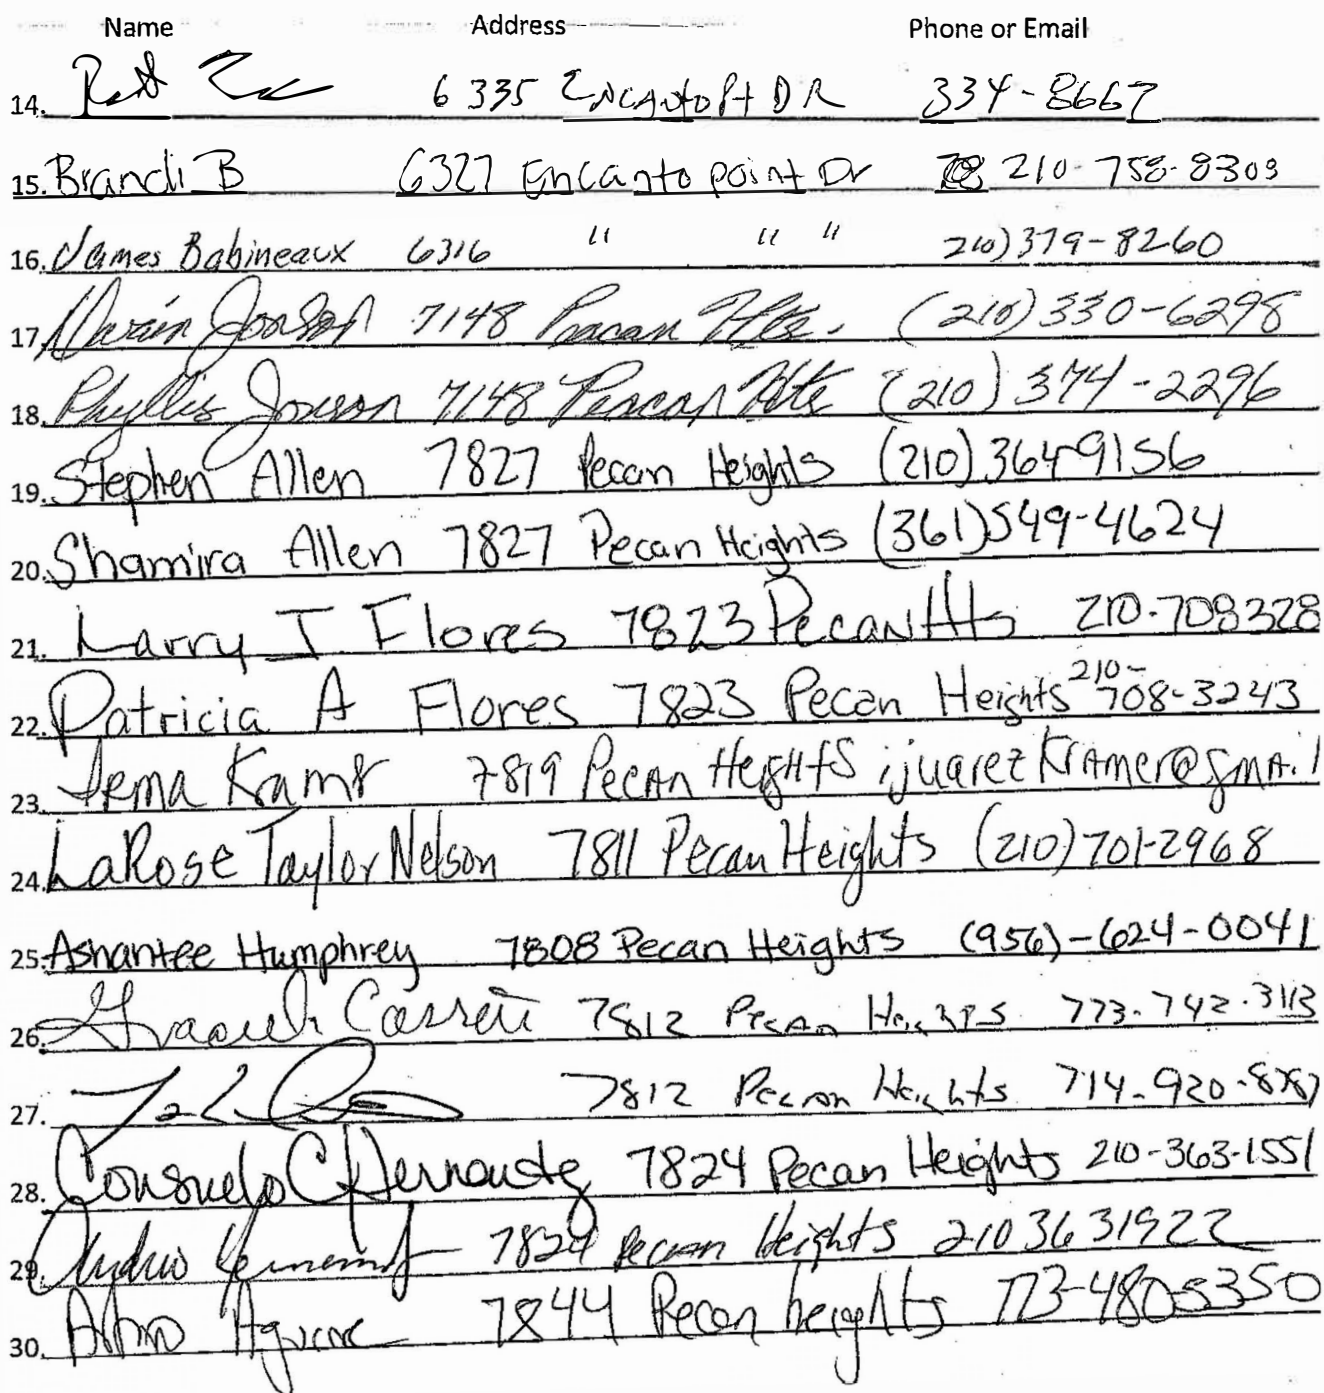 Name Address Phone or Email
14. 6335 Encanto Pt DR 334-8667
15. Brandi B 6327 Encanto point Dr 210-758-8303
16. James Babineaux 6316 " " " 210)379-8260
17. 7148 Pecan Hts. (210)330-6298
18. Phyllis Jonson 7148 Pecan Hts (210) 374-2296
19. Stephen Allen 7827 Pecan Heights (210)364-9156
20. Shamira Allen 7827 Pecan Heights (361)549-4624
21. Larry J Flores 7823 Pecan Hts 210-708328
22. Patricia A Flores 7823 Pecan Heights 210-708-3243
23. 7819 Pecan Heights ijuarezkramer@gmail
24. LaRose Taylor Nelson 7811 Pecan Heights (210)701-2968
25. Ashantee Humphrey 7808 Pecan Heights (956)-624-0041
26. 7812 Pecan Heights 773-742-3113
27. 7812 Pecan Heights 714-920-8787
28. Consuelo C Hernandez 7824 Pecan Heights 210-363-1551
29. 7824 Pecan Heights 2103631922
30. 7844 Pecan heights 773-480-5350